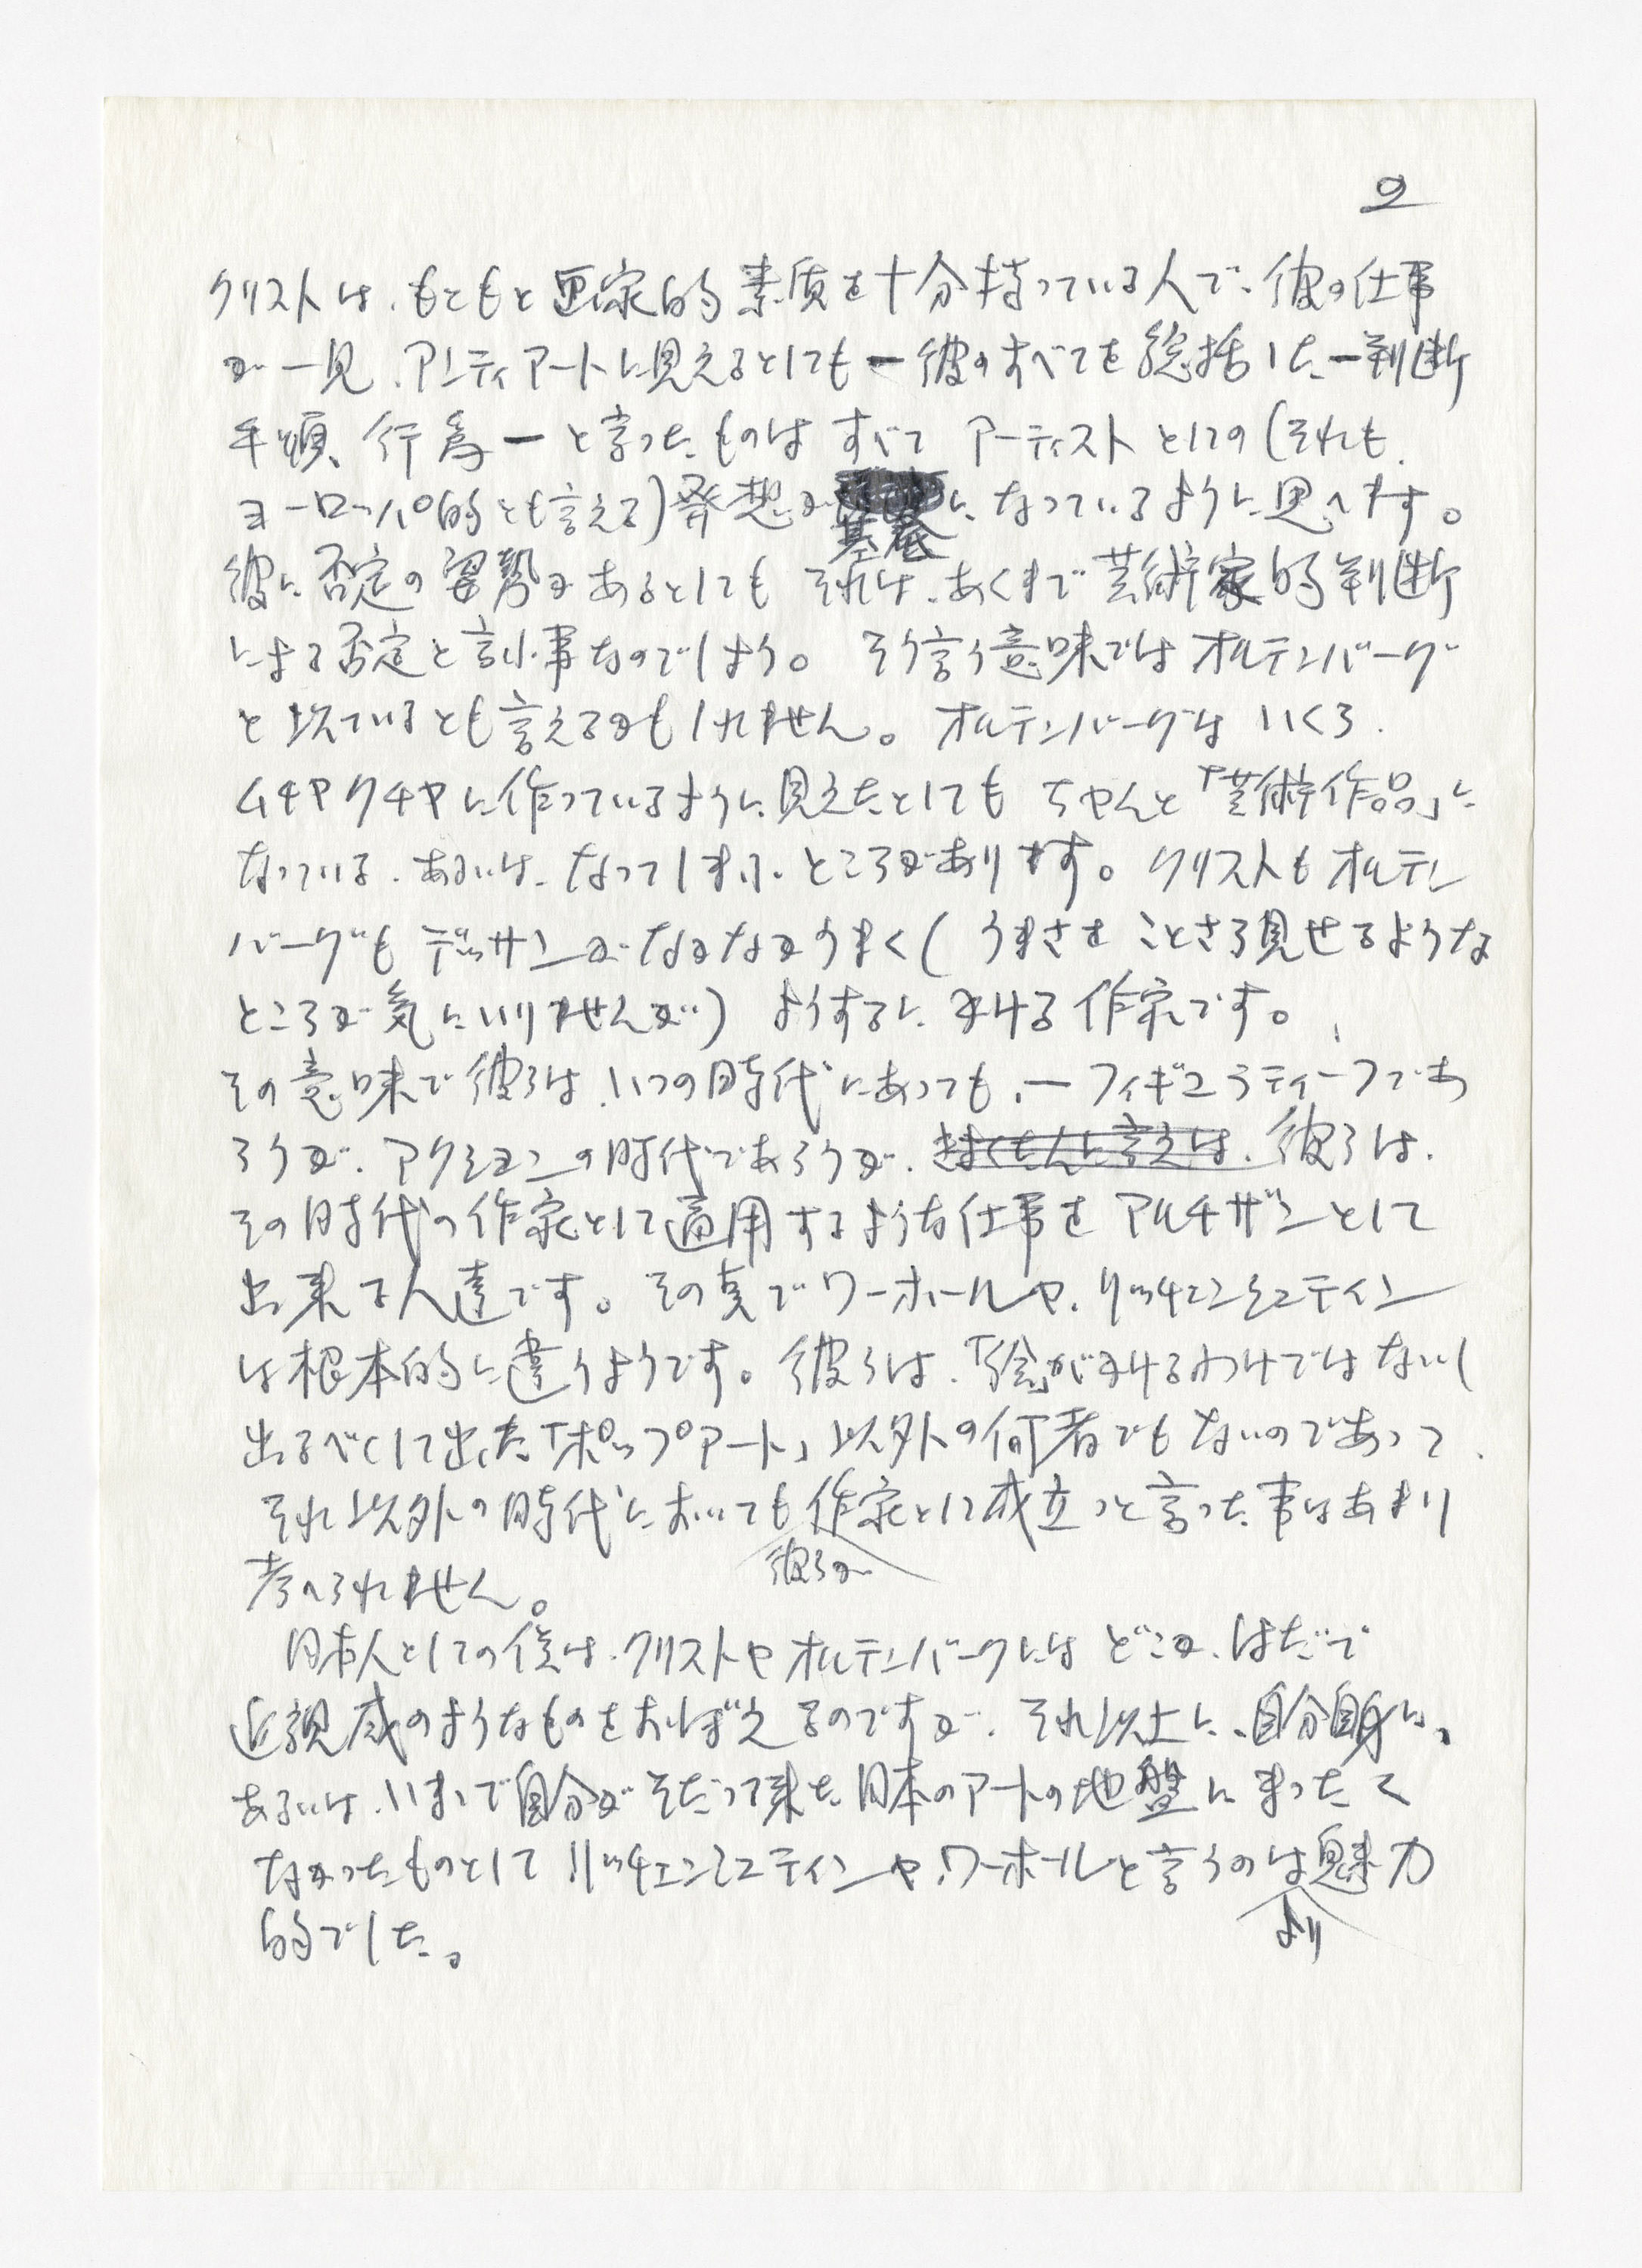 2
クリストは、もともと画家的素質を十分持っている人で、彼の仕事
が一見、アンティアートに見えるとしても ー彼のすべてを総括した一判断
手順、行為ー と言ったものは すべて アーティスト としての (それも、
ヨーロッパ的とも言える) 発想が基底に、なっているように思へます。
彼に否定の姿勢があるとしても それは、あくまで芸術家的判断
による否定と言ふ事なのでしょう。 そう言う意味では オルテンバーグ
と似ているとも言えるかもしれません。 オルテンバーグは いくら、
ムチヤクチヤに作っているように、見えたとしても ちやんと「芸術作品」に
なっている、あるいは、なってしまふ、ところがあります。 クリストもオルテン
バーグも デッサンが なかなかうまく ( うまさを ことさら見せるような
ところが 気にいりませんが) ようするに、かける 作家です。
その意味で彼らは、いつの時代にあっても、ーフィギュラティーフであ
ろうが、アクションの時代であろうが、彼らは、
その時代の作家として適用するような仕事を アルチザンとして
出来る人達です。 その点で ワーホールや、リッチェンシュテイン
は根本的に違うようです。 彼らは、「絵」がかけるわけではないし
出るべくして出た「ポップアート」以外の何者でもないのであって、
それ以外の時代においても彼らが作家として成立つと言った事はあまり
考へられません。
日本人としての僕は、クリストやオルテンバークには どこか、はだで
近親感のようなものをおぼえるのですが、それ以上に、自分自身に、
あるいは、いままで自分がそだって来た日本のアートの地盤にまったく
なかったものとして リッチェンシュテインや、ワーホールと言うのはより魅力
的でした。